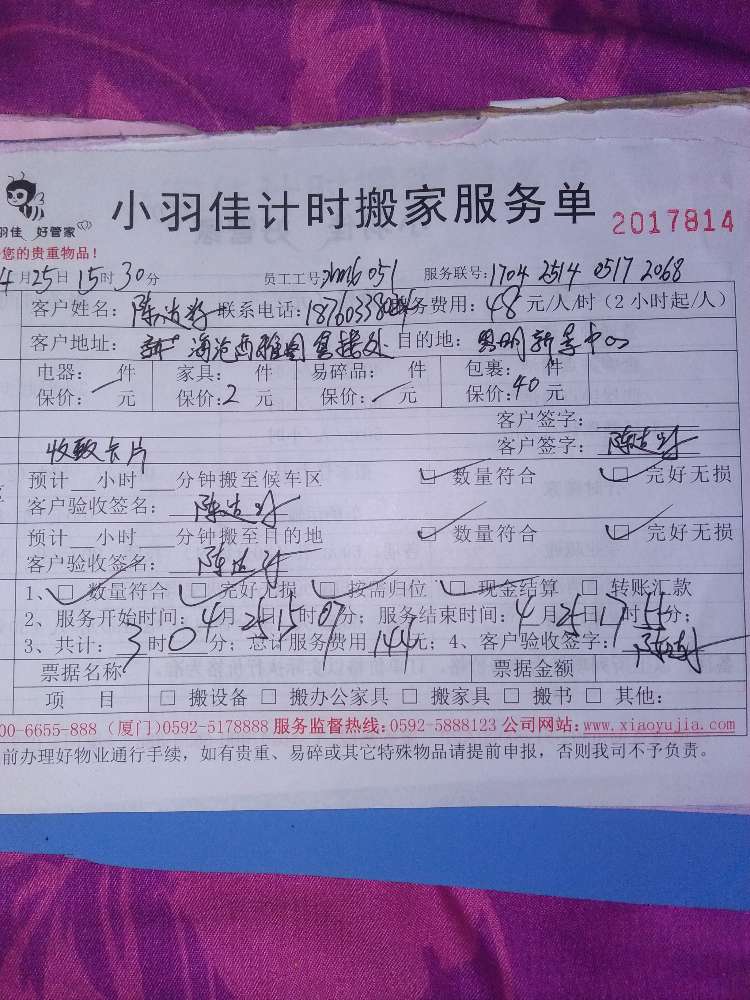 小羽佳计时搬家服务单 2017814
羽佳 好管家
您的贵重物品!
4月25日15时30分 员工工号: 051 服务联号:1704 2514 0517 2068
客户姓名:陈 联系电话:1876033 服务费用:48元/人/时(2小时起/人)
客户地址: 海沧西雅图售楼处 目的地: 明新 中心
电器: 件 家具: 件 易碎品: 件 包裹: 件
保价:一元 保价:2元 保价:一元 保价:40元
客户签字:
收致卡片 客户签字:陈
预计 小时 分钟搬至候车区 ☑ 数量符合 ☑ 完好无损
客户验收签名: 陈
预计 小时 分钟搬至目的地 ☑ 数量符合 ☑ 完好无损
客户验收签名: 陈
1、☑ 数量符合 ☑ 完好无损 ☑ 按需归位 ☑ 现金结算 □ 转账汇款
2、服务开始时间:4月25日15时07分;服务结束时间:4月25日17时 分;
3、共计:3时0分;总计服务费用144元;4、客户验收签字:陈
票据名称 票据金额
项 目 □ 搬设备 □ 搬办公家具 □ 搬家具 □ 搬书 □ 其他:
00-6655-888(厦门)0592-5178888 服务监督热线:0592-5888123 公司网站:www.xiaoyujia.com
前办理好物业通行手续,如有贵重、易碎或其它特殊物品请提前申报,否则我司不予负责。